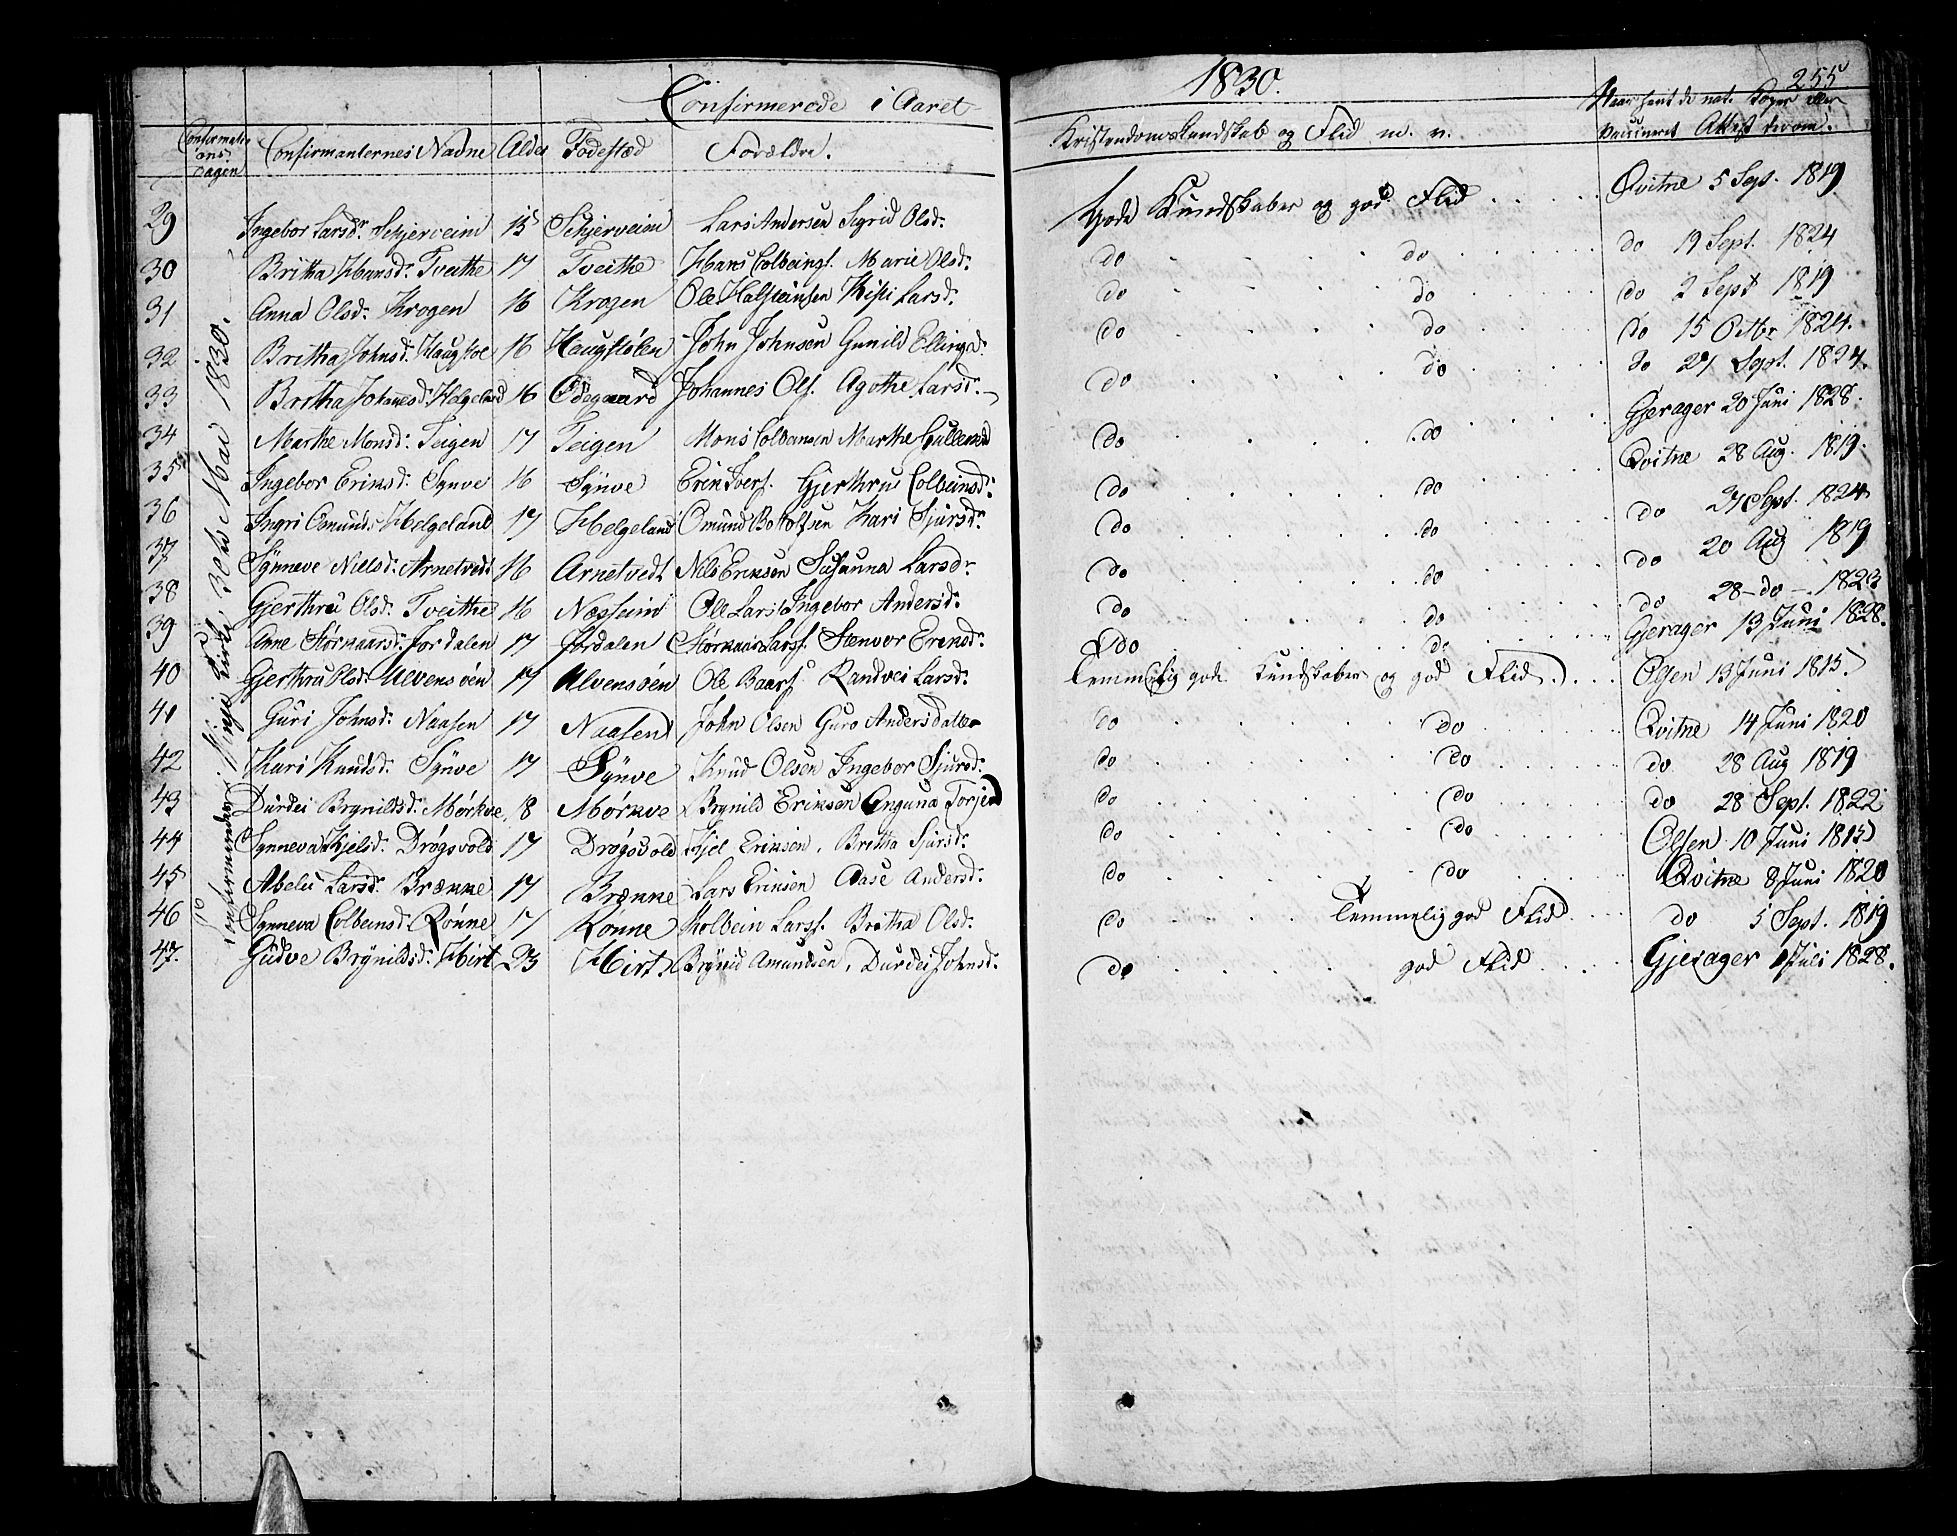 Confirmerede i Aaret 1830. 255
Confirmations dagen Confirmanternes Nadne Alder Fødestæd Forældre. Kristendomskundskab og Flid m. v. Naar havt de nat. Koper eller vaccineret Attest derom.
Confirmerede i Vinje Kirke 30te Mai 1830.
29 Ingebor Larsdr. Schjerveim 15 Schjerveim Lars Andersen Sigrid Olsdr. Gode Kundskaber og god Flid Qvitne 5 Sept. 1819
30 Britha Hansdr. Tveithe 17 Tveithe Hans Colbeins. Marie Olsdr. do do do 19 Sept. 1824
31 Anna Olsdr. Krogen 16 Krogen Ole Halsteinsen Kisti Larsdr. do do do 2 Sept 1819
32 Britha Johnsdr. Haugstøl 16 Haugstølen John Johnsen Gunild Ellingsd. do do do 15 Octbr 1824.
33 Brithа Johnnesd. Helgeland 16 Ødegaard Johannes Ols. Agothe Larsdr. do do do 27 Sept. 1824.
34 Marthe Monsdr. Teigen 17 Teigen Mons Colbensen Marthe Gullemd do do Gjerager 20 Juni 1828.
35 Ingebor Eriksdr. Synve 16 Synve Erik Ivers. Gjerthrud Colbeinsdr. do do Qvitne 28 Aug. 1819.
36 Ingri Omunds. Helgeland 17 Helgeland Omund Botolfsen Kari Sjursdr. do do do 27 Sept. 1824
37 Synneve Nielsdr. Arnetvedt 16 Arnetvedt Nils Eriksen Susanna Larsdr. do do do 20 Aug 1819
38 Gjerthru Olsdr. Tveithe 16 Næsheim Ole Lars. Ingebor Andersdr. do do do 28 - do - 1823
39 Anne Störkaarsdr. Jordalen 17 Jordalen Störkaar Larss. Stenvor Eriksdr. do do Gjerager 13 Juni 1828.
40 Gjerthru Olsdr. Ulvensøen 17 Ulvensøen Ole Baars. Randvei Larsdr. Temmelig gode Kundskaber og god Flid. Olsen 13 Juni 1815
41 Guri Johnsdr. Naasen 17 Naasen John Olsen Guro Andersdatter do do Qvitne 14 Juni 1820
42 Kari Knudsdr. Synve 17 Synve Knud Olsen Ingebor Sjursdr. do do do 28 Aug 1819
43 Durdei Brynildsdr. Mørkve 18 Mørkve Brynild Eriksen Anguna Torjersd do do do 28 Sept. 1822
44 Synneva Kjelsdr. Drøgsvold 17 Drøgsvold Kjel Eriksen. Britha Sjursdr. do do Olsen 10 Juni 1815
45 Abelu Larsdr. Brænne 17 Brænne Lars Eriksen Aase Andersdr. do do Qvitne 8 Juni 1820
46 Synneva Colbeinsdr. Rønne 17 Rønne Kolbein Larss. Britha Olsdr. do Temmelig god Flid do 5 Sept. 1819
47. Gudve Brynildsdr. Hirt 23 Hirt Brynild Amundsen. Durdei Johnsdr. do god Flid Gjerager Juli 1828.